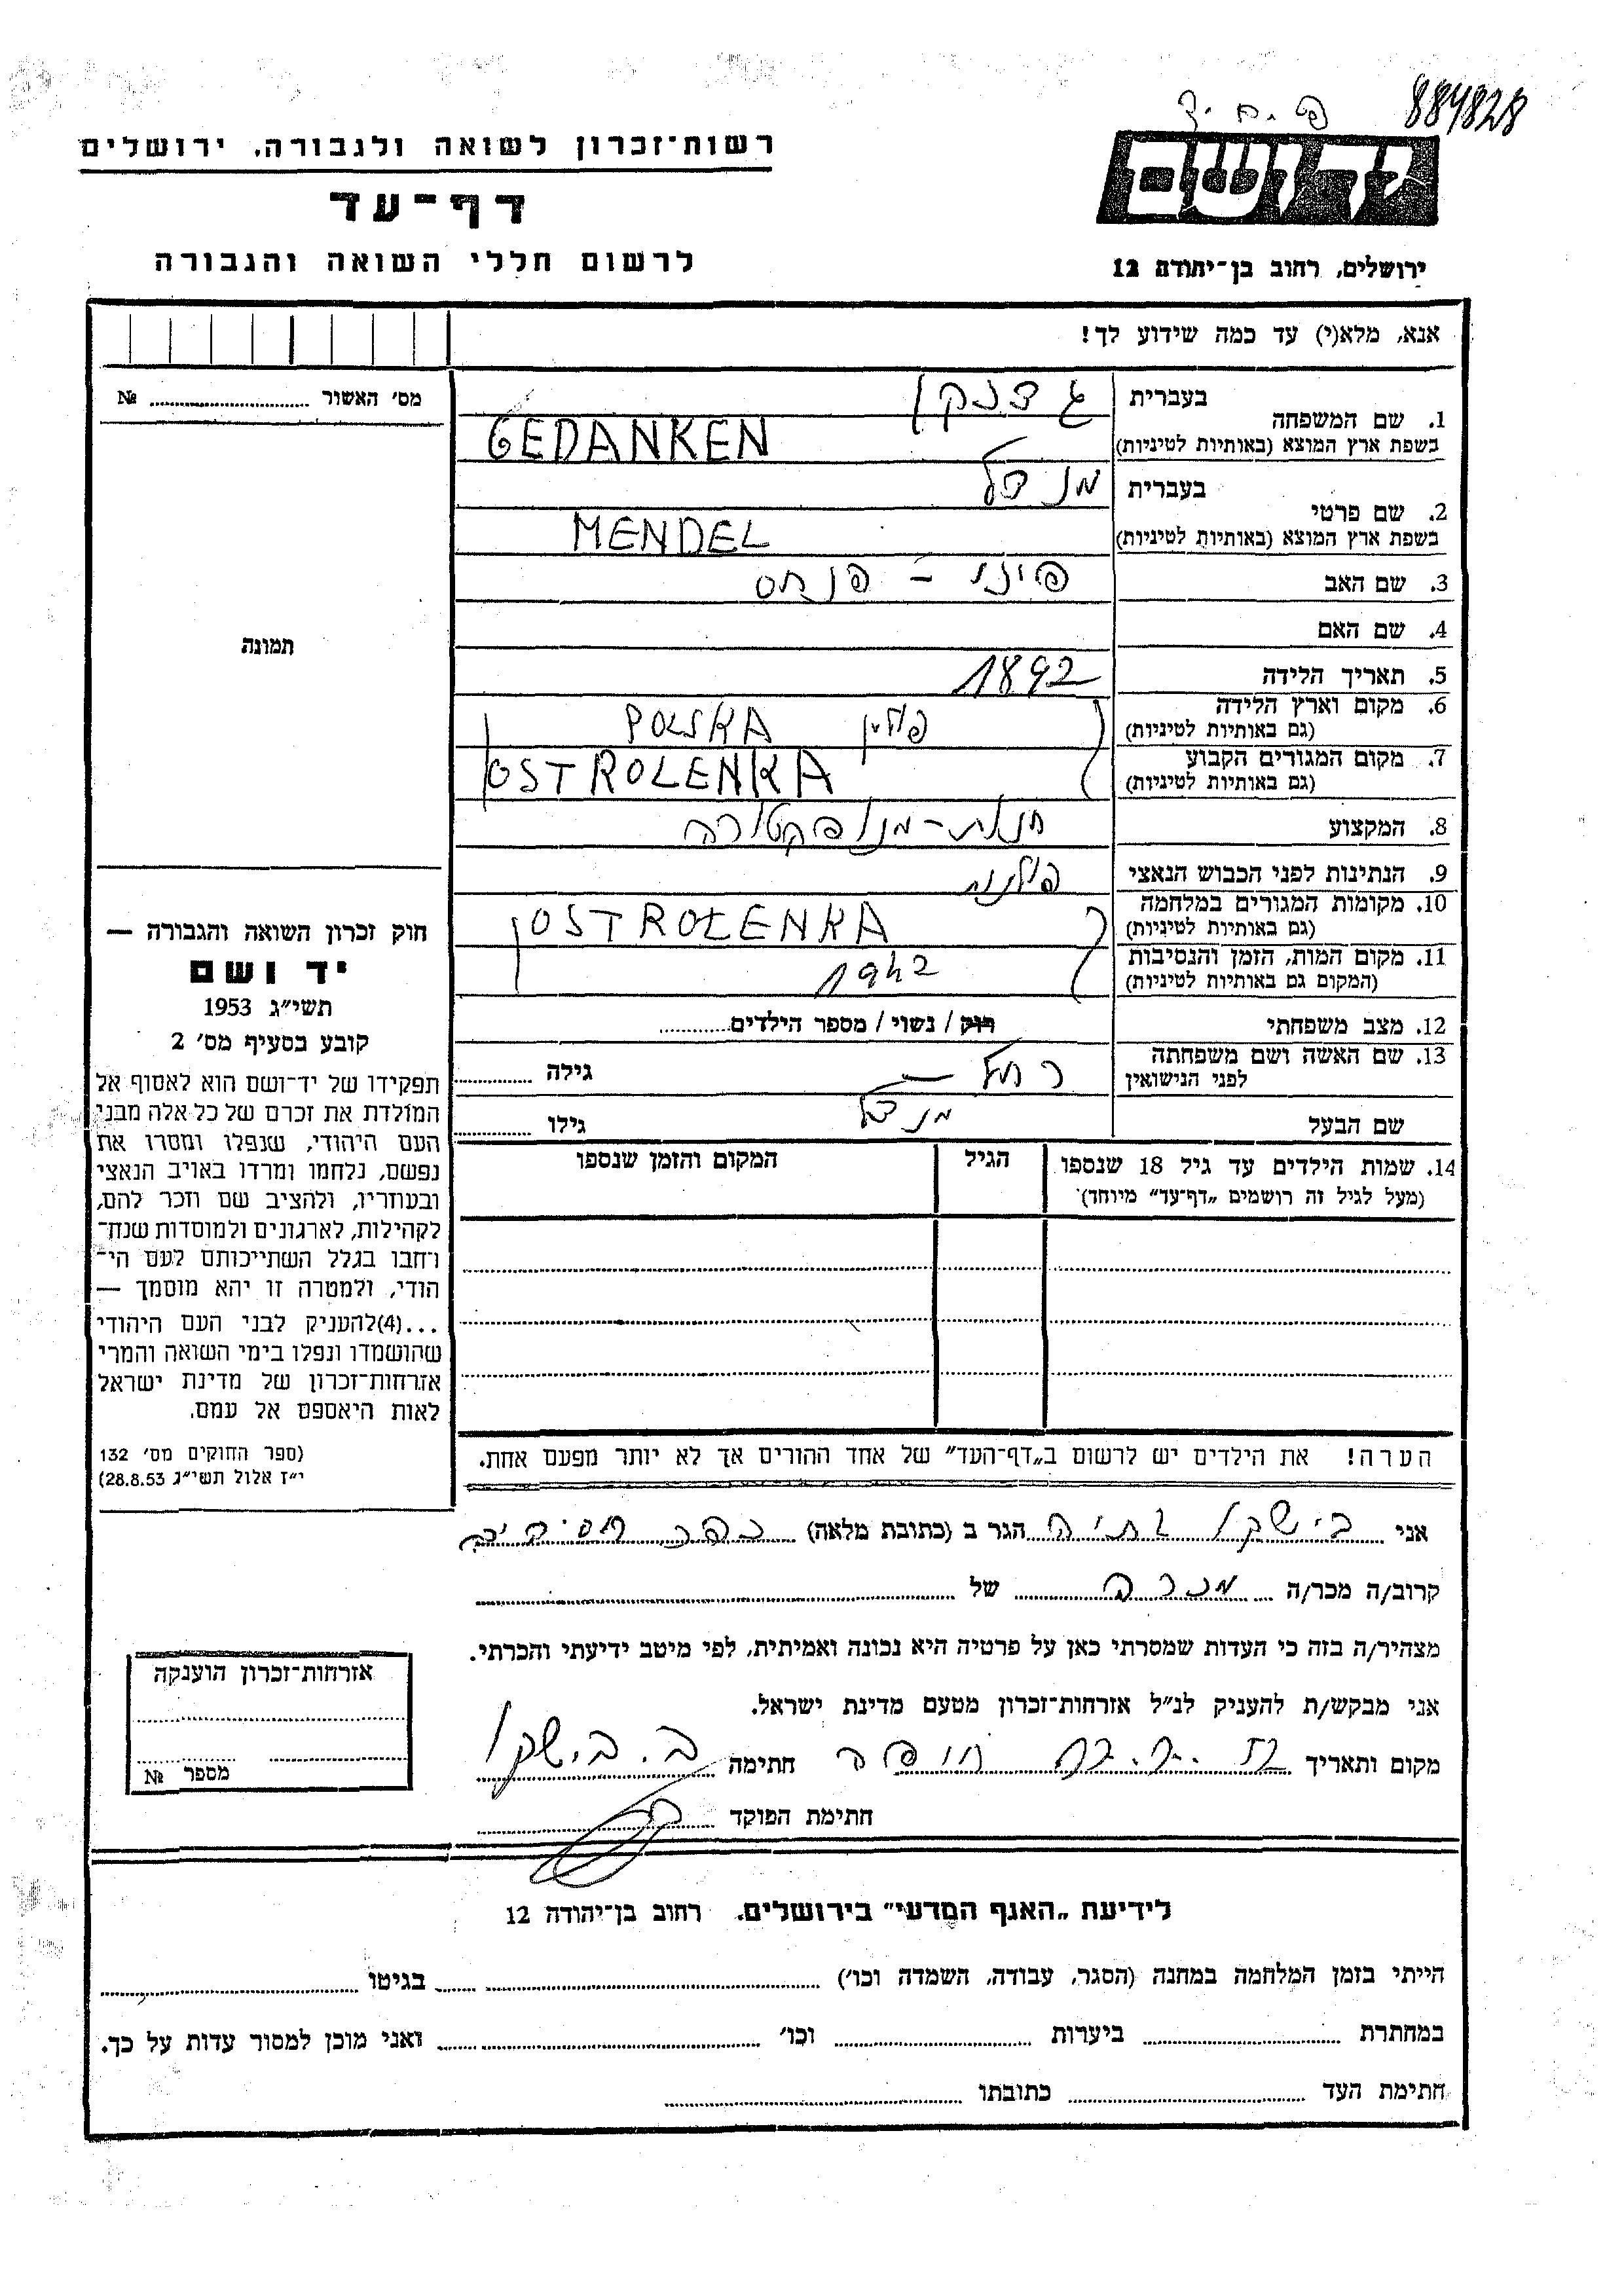 884828
פ.ח.ך
יד ושם
ירושלים, רחוב בן־יהודה 12
רשות־זכרון לשואה ולגבורה. ירושלים
דף־עד
לרשום חללי השואה והגבורה
אנא, מלא(י) עד כמה שידוע לך!
מס׳ האשור ........ №
תמונה
1. שם המשפחה בעברית גדנקן
בשפת ארץ המוצא (באותיות לטיניות) GEDANKEN
2. שם פרטי בעברית מנדל
בשפת ארץ המוצא (באותיות לטיניות) MENDEL
3. שם האב פיני – פנחס
4. שם האם
5. תאריך הלידה 1892
6. מקום וארץ הלידה פולין POLSKA
(גם באותיות לטיניות)
7. מקום המגורים הקבוע OSTROLENKA
(גם באותיות לטיניות)
8. המקצוע חנות-מנופקטורה
9. הנתינות לפני הכבוש הנאצי פולנית
10. מקומות המגורים במלחמה OSTROŁENKA
(גם באותיות לטיניות)
11. מקום המות, הזמן והנסיבות 1942
(המקום גם באותיות לטיניות)
12. מצב משפחתי רוק / נשוי / מספר הילדים........
13. שם האשה ושם משפחתה רחל – גילה ........
לפני הנישואין
שם הבעל מנדל גילו ........
14. שמות הילדים עד גיל 18 שנספו הגיל המקום והזמן שנספו
(מעל לגיל זה רושמים „דף־עד” מיוחד)
הערה! את הילדים יש לרשום ב„דף־העד” של אחד ההורים אך לא יותר מפעם אחת.
חוק זכרון השואה והגבורה —
יד ושם
תשי״ג 1953
קובע בסעיף מס׳ 2
תפקידו של יד־ושם הוא לאסוף אל
המולדת את זכרם של כל אלה מבני
העם היהודי, שנפלו ומסרו את
נפשם, נלחמו ומרדו באויב הנאצי
ובעוזריו, ולהציב שם וזכר להם,
לקהילות, לארגונים ולמוסדות שנח־
רחבו בגלל השתייכותם לעם הי־
הודי, ולמטרה זו יהא מוסמך —
...(4)להעניק לבני העם היהודי
שהושמדו ונפלו בימי השואה והמרי
אזרחות־זכרון של מדינת ישראל
לאות היאספם אל עמם.
(ספר החוקים מס׳ 132
י״ז אלול תשי״ג 28.8.53)
אני בישקו הגר ב (כתובת מלאה) כפר
קרוב/ה מכר/ה מכרה של
מצהיר/ה בזה כי העדות שמסרתי כאן על פרטיה היא נכונה ואמיתית, לפי מיטב ידיעתי והכרתי.
אני מבקש/ת להעניק לנ״ל אזרחות־זכרון מטעם מדינת ישראל.
מקום ותאריך חיפה חתימה ב. בישקו
חתימת הפוקד
אזרחות־זכרון הוענקה
מספר №
לידיעת „האגף המדעי” בירושלים. רחוב בן־יהודה 12
הייתי בזמן המלחמה במחנה (הסגר, עבודה, השמדה וכו׳) ........ בגיטו ........
במחתרת ........ ביערות ........ וכו׳ ........ ואני מוכן למסור עדות על כך.
חתימת העד ........ כתובתו ........